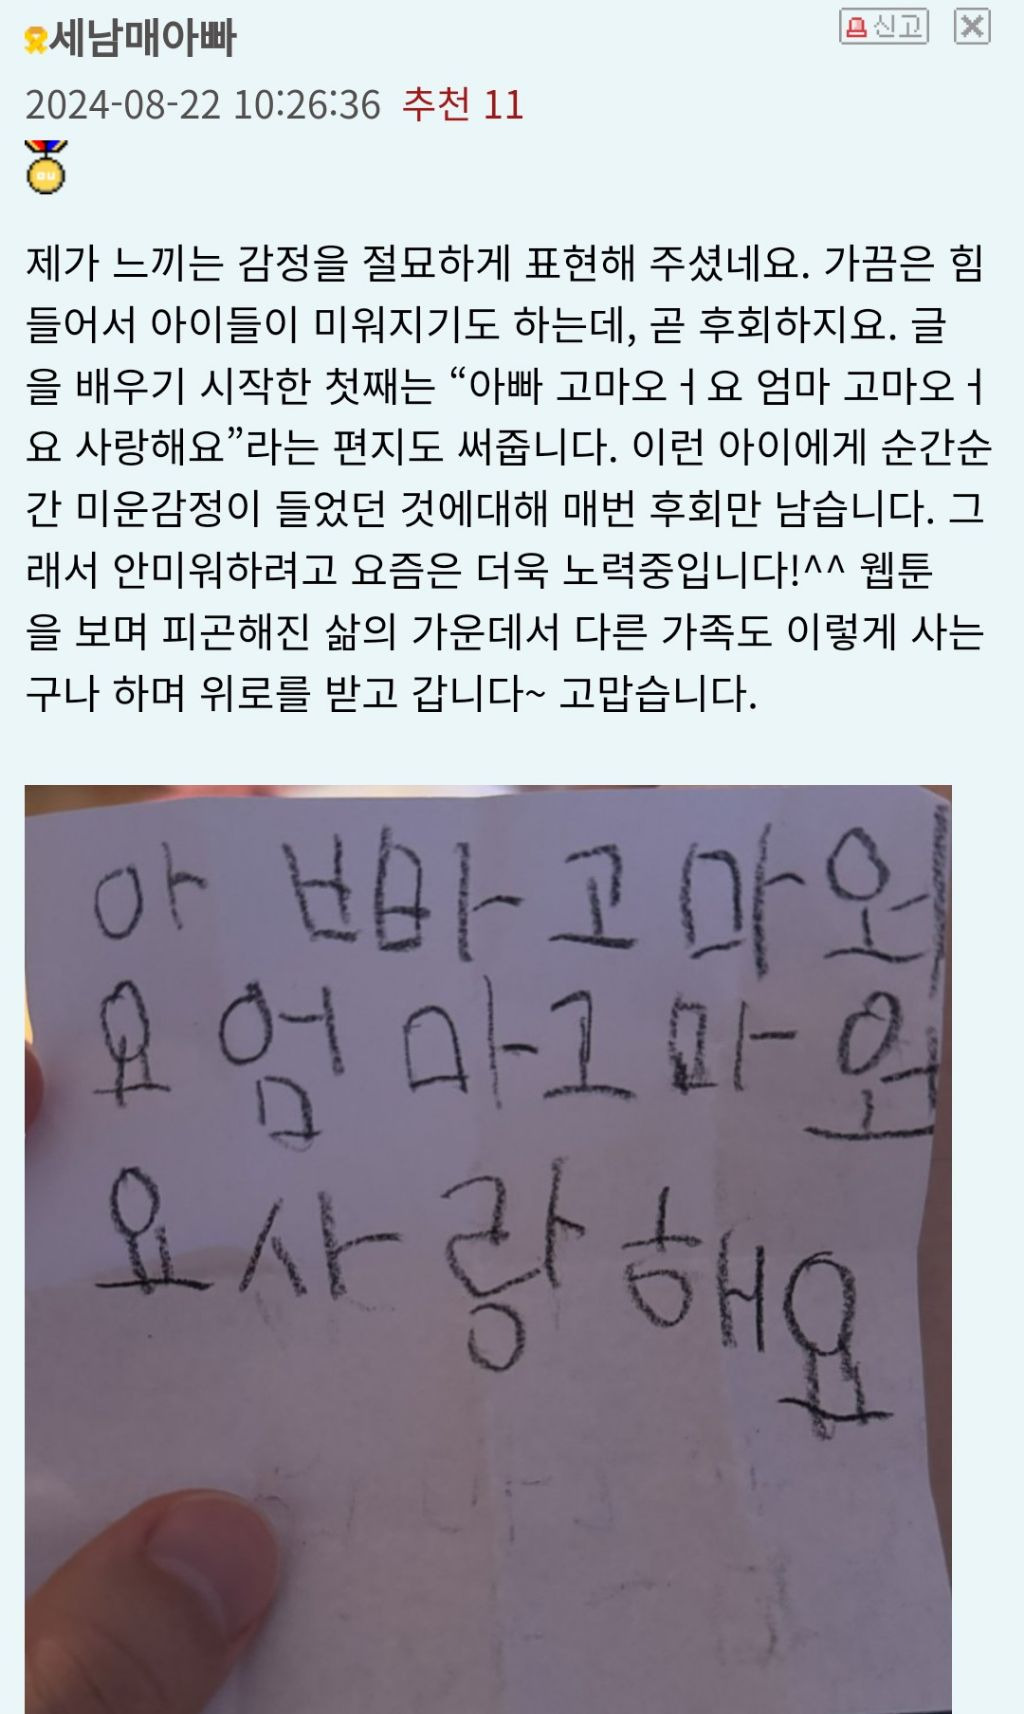 세남매아빠
신고
2024-08-22 10:26:36 추천 11
제가 느끼는 감정을 절묘하게 표현해 주셨네요. 가끔은 힘
들어서 아이들이 미워지기도 하는데, 곧 후회하지요. 글
을 배우기 시작한 첫째는 “아빠 고마오ㅓ요 엄마 고마오ㅓ
요 사랑해요”라는 편지도 써줍니다. 이런 아이에게 순간순
간 미운감정이 들었던 것에대해 매번 후회만 남습니다. 그
래서 안미워하려고 요즘은 더욱 노력중입니다!^^ 웹툰
을 보며 피곤해진 삶의 가운데서 다른 가족도 이렇게 사는
구나 하며 위로를 받고 갑니다~ 고맙습니다.
아 ㅂ바 고 마 워
요 엄 마 고 마 워
요 사 랑 해 요